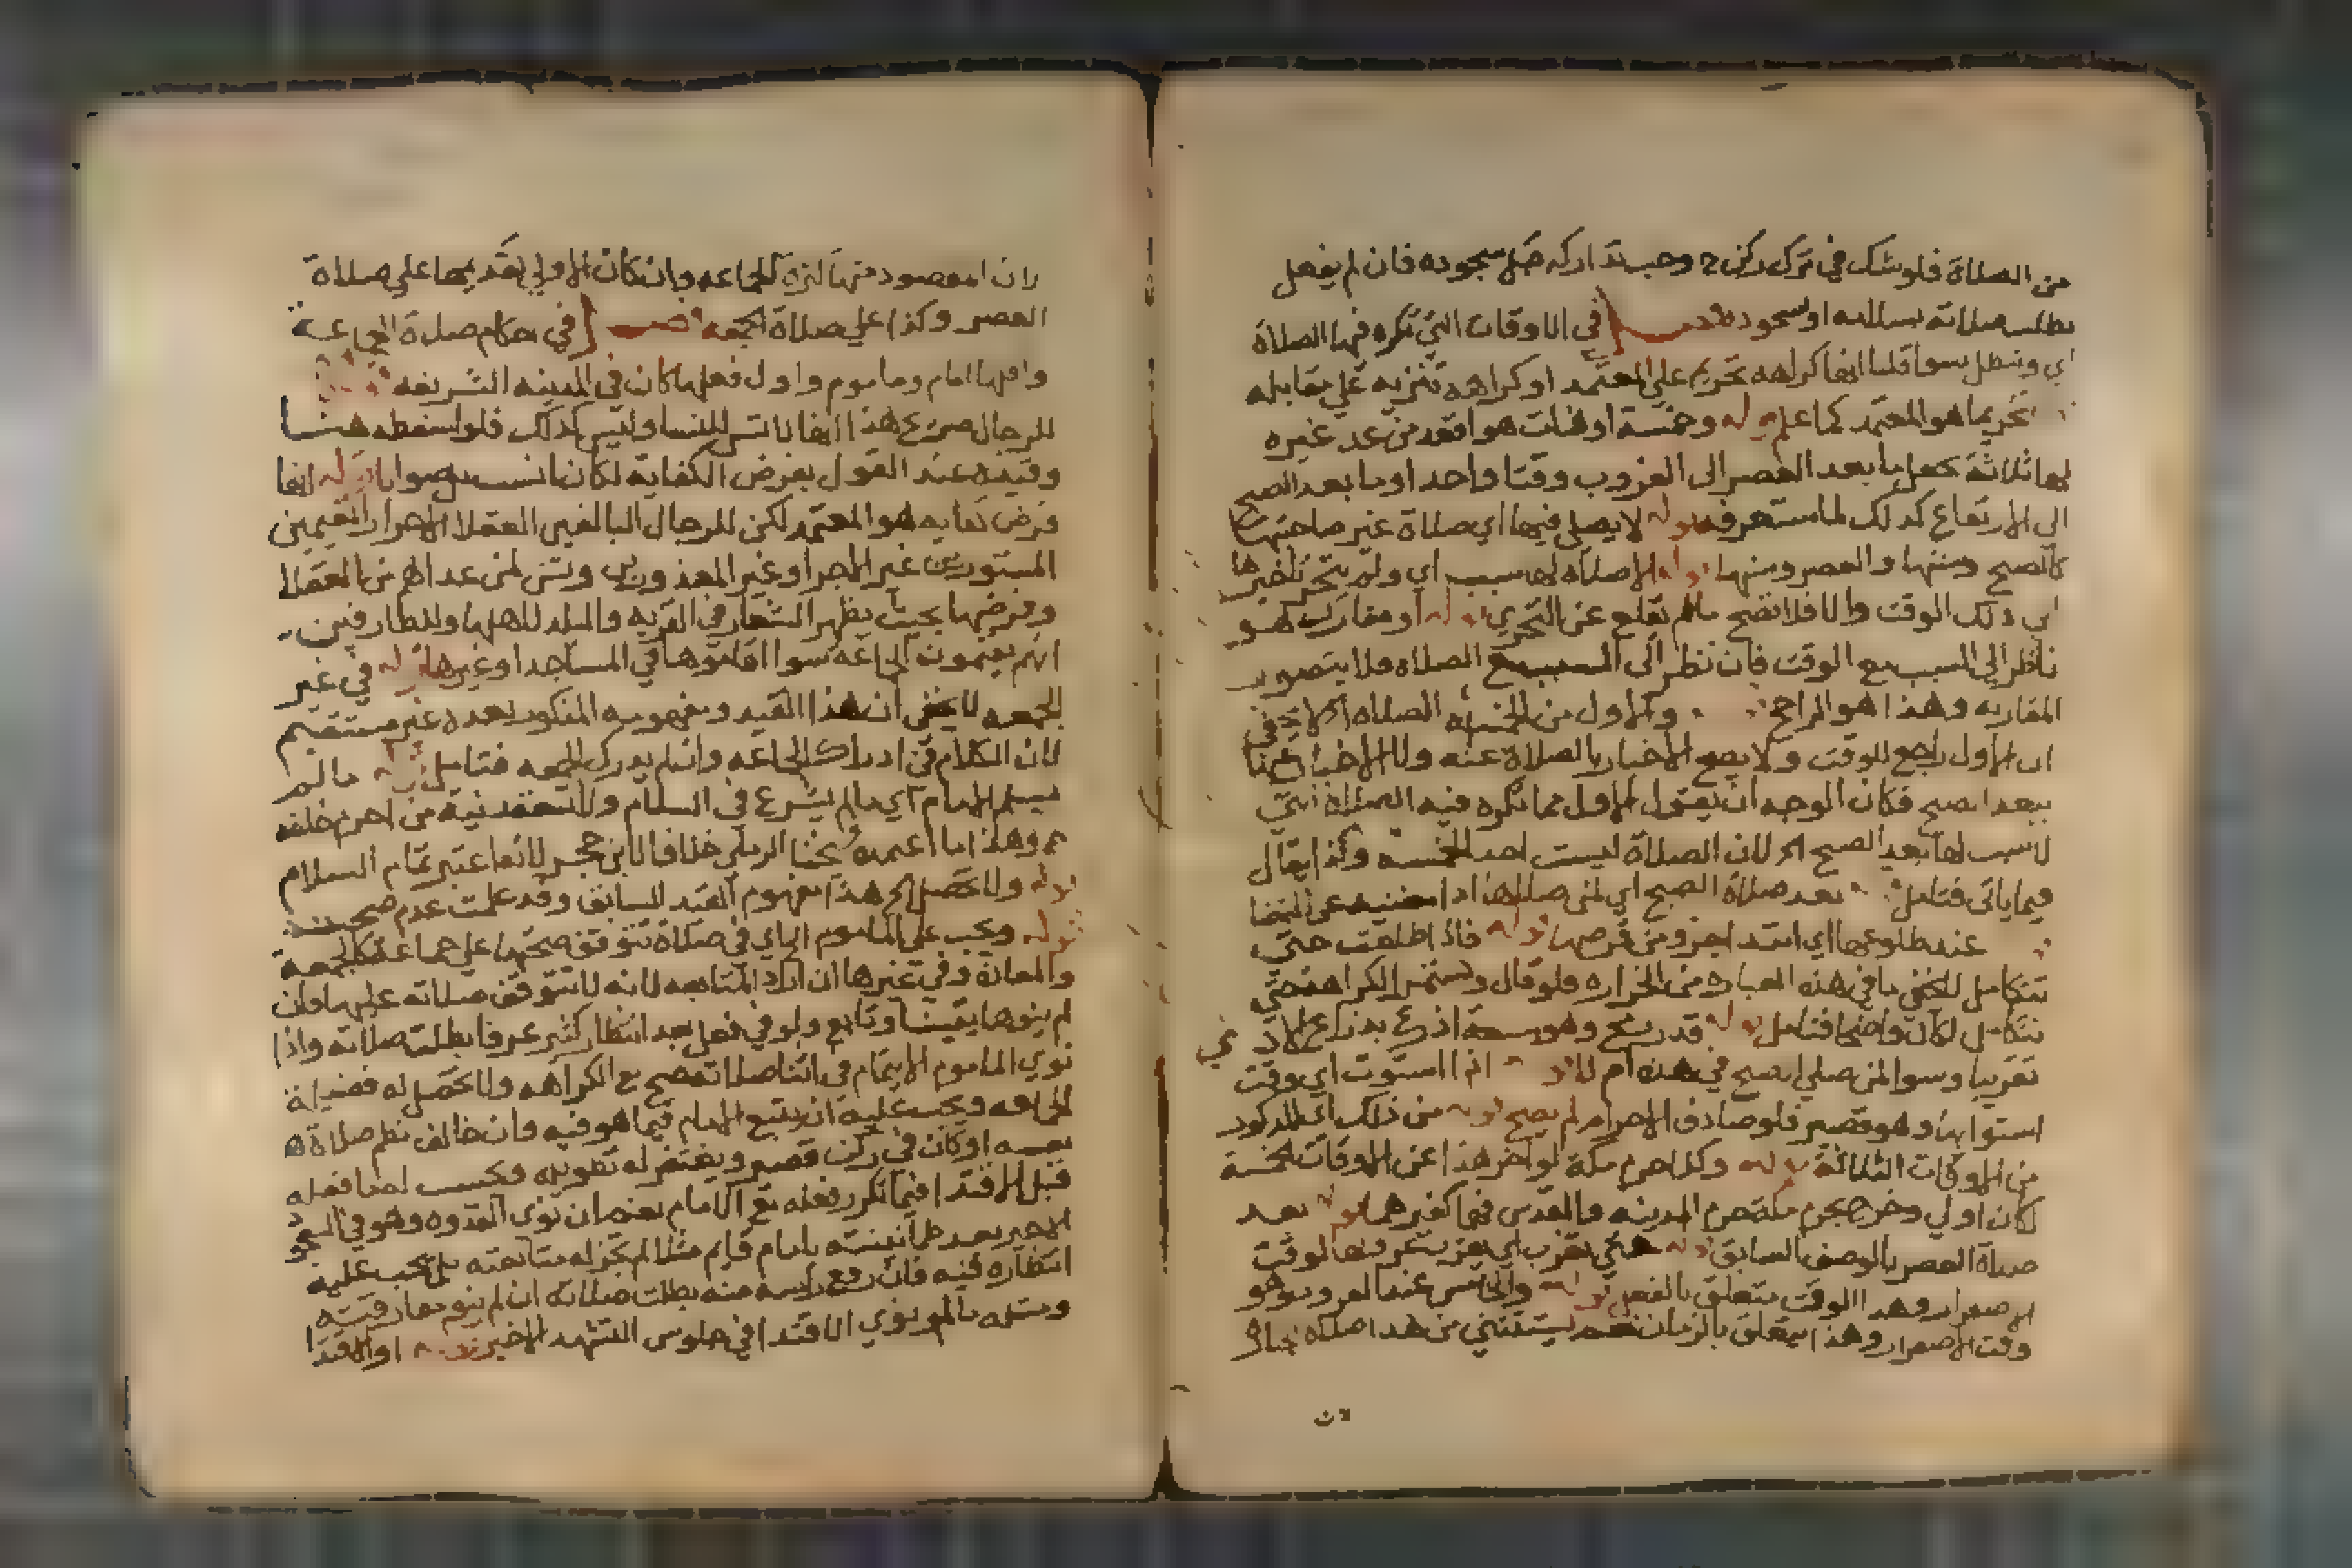 من الصلاة فلو شك في ترك ركن وجب تداركه قبل سجوده فان لم يفعل
بطلت صلاته بسلامه او سجوده فصل في الاوقات التي تكره فيها الصلاة
اي وتبطل سوا قلنا انها كراهة تحريم على المعتمد او كراهة تنزيه على مقابله
تحريما هو المعتمد كما علم قوله وخمسة اوقات هو اقعد من عد غيره
لها ثلاثة بجعل ما بعد العصر الى الغروب وقتا واحدا وما بعد الصبح
الى الارتفاع كذلك لما ستعرفه قوله لا يصلى فيها اي صلاة غير صاحبتها
كالصبح وسنتها والعصر وسنتها قوله الا صلاة لها سبب اي ولم يتحر تاخيرها
الى ذلك الوقت والا فلا تصح ما لم يقلع عن التحري قوله او مقارن هو
ناظر الى السبب مع الوقت فان نظر الى السبب مع الصلاة فلا يتصور
المقارنة وهذا هو الراجح والاول من الخمسة الصلاة الا يخفى
ان الاول راجع للوقت ولا يصح الاخبار بالصلاة عنه ولا الاخبار عنها
ببعد الصبح فكان الوجه ان يقول الاول مما تكره فيه الصلاة التي
لا سبب لها بعد الصبح الخ لان الصلاة ليست احد الخمسة وكذا يقال
فيما ياتي فتامل بعد صلاة الصبح اي لمن صلاها ادا مغنية عن القضا
عند طلوعها اي ابتدا جزو من قرصها قوله فاذا طلعت حتى
تتكامل للخفى ما في هذه العبارة من الحزازه ولو قال وتستمر الكراهة حتى
تتكامل لكان واضحا فتامل قوله قدر رمح وهو سبعة اذرع بذراع الادمي
تقريبا وسوا لمن صلى الصبح في هذه ام لا قوله اذا استوت اي وقت
استوائها وهو قصير فلو صادف الاحرام لم يصح قوله من ذلك اي المذكور
من الاوقات الثلاثة قوله وكذا حرم مكة لو اخر هذا عن الاوقات الخمسة
لكان اولى وخرج بحرم مكة حرم المدينه والمقدس فهما كغيرهما قوله بعد
صلاة العصر بالوصف السابق قوله حتى تغرب اي بغروب
الاصفرار وهذا الوقت يتعلق بالفعل قوله والخامس عند الغروب وهو
وقت الاصفرار وهذا يتعلق بالزمان نعم يستثنى من هذا صلاة
لان
لان المقصود منها كثرة الجماعه وان كان الاولى تقديمها على صلاة
العصر وكذا على صلاة الجمعه فصل في احكام صلاة الجماعة
واقلها امام وماموم واول فعلها كان في المدينه الشريفه
للرجال صرح هذا انها لا تسن للنسا وليس كذلك فلو اسقطه هنا
وقيده عند القول بفرض الكفاية لكان انسب بل صوابا قوله انها
فرض كفايه هو المعتمد لكن للرجال البالغين العقلا الاحرار المقيمين
المستورين غير الاجرا وغير المعذورين وتسن لمن عداهم من العقلا
وفرضها بحيث يظهر الشعار في القريه والبلد لاهلها وللطارقين
انهم يقيمون الجماعه سوا اقاموها في المساجد او غيرها قوله في غير
الجمعه لا يخفى ان هذا القيد ومفهومه المذكور بعده غير مستقيم
لان الكلام في ادراك الجماعه وان لم يدرك الجمعه فتامل قوله ما لم
يسلم الامام اي ما لم يشرع في السلام ولا تنعقد نية من احرم خلفه
وهذا ما اعتمده شيخنا الرملي خلافا لابن حجر لانها عتبر تمام السلام
قوله ولا تحصل الخ هذا مفهوم القيد السابق وقد علمت عدم صحته
قوله ويجب على الماموم الخ اي في صلاة تتوقف صحتها على جماعة كالجمعة
والمعادة وفي غيرها ان اراد المتابعه لانه لا تتوقف صلاته عليها فان
لم ينوها يقينا وتابع ولو في فعل بعد انتظار كثير عرفا بطلت صلاته واذا
نوى الماموم الايتمام في اثنا صلاته صح مع الكراهه ولا تحصل له فضيلة
الجماعه ويجب عليه ان يتبع الامام فيما هو فيه وان خالف نظم صلاة
نفسه او كان في ركن قصير ويغتفر له تطويله ويحسب له ما فعله
قبل الاقتدا فيما تكرر فعله مع الامام نعم ان نوى القدوه وهو في السجود
الاخير بعد طمانينته بامام قايم مثلا لم يجز له متابعته بل يجب عليه
انتظاره فيه فان رفع راسه منه بطلت صلاته ان لم ينو مفارقته
ومثله ما لو نوى الاقتدا في جلوس التشهد الاخير قوله او الاقتدا